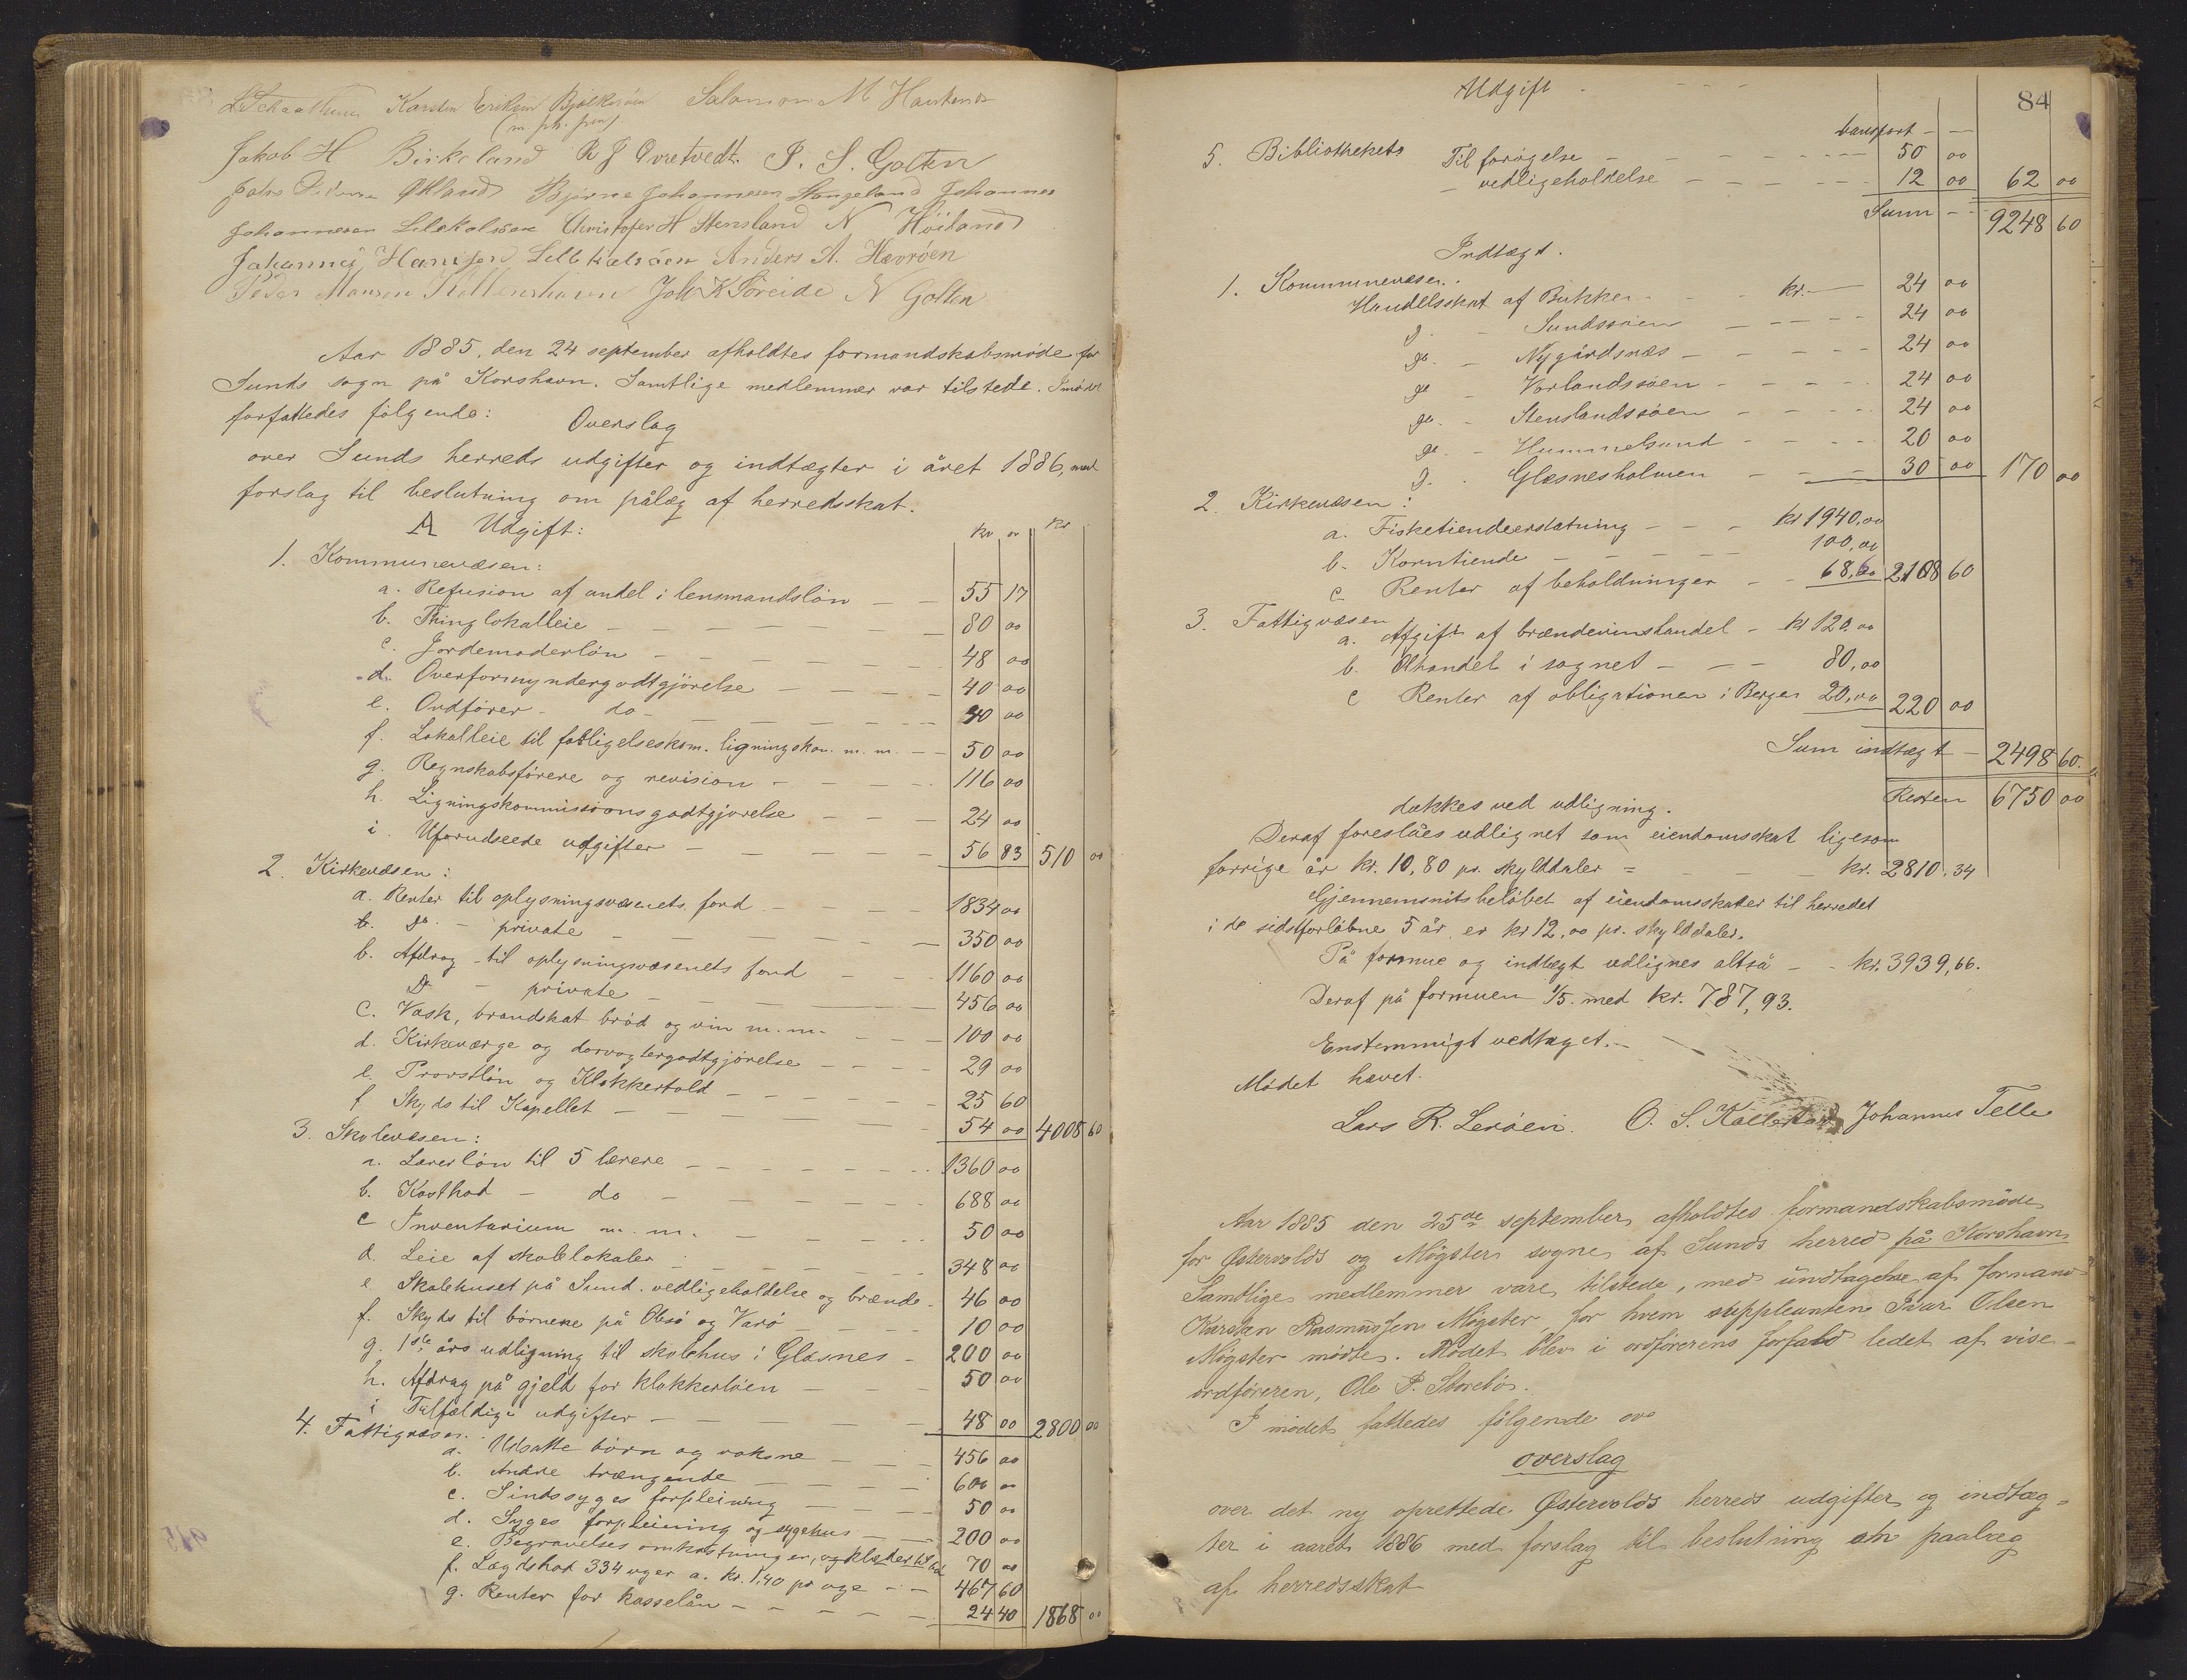 Karsten Eriksen Bjelkerøen Salamon M Hankenes
(m. ph. pen)
Jakob H Birkeland R J Ovretvedt. P. S. Golten
Økland Bjørne Johannesen Stangeland Johannes
Johannesen Lilekalsøen Christofer H Stensland N Höiland
Johannes Hansen Lillekalsöen Anders A. Hevröen
Peder Monsen Kollenshavn Joh K Toreide N Golten
Aar 1885, den 24 september afholdtes formandskabsmöde for
Sunds sogn på Korshavn. Samtlige medlemmer var tilstede. I mödet
forfattedes fölgende:
Overslag
over Sunds herreds udgifter og indtægter i året 1886, med
forslag til beslutning om pålæg af herredsskat.
A Udgift: Kr ør Kr
1. Kommunevæsen:
a. Refusion af andel i lensmandslön — — 55 17
b. Thinglokalleie — — — 80 00
c. Jordemoderlön — — — 48 00
d. Overformyndergodtgjörelse — — — 40 00
e. Ordförer - do - — — — 40 00
f. Lokalleie til forligelseskom. ligningskom. m. m. — — 50 00
g. Regnskabsförere og revision — — 116 00
h. Ligningskommissionsgodtgjörelse — — — 24 00
i. Uforudseede udgifter — — — 56 83 510 00
2. Kirkevæsen:
a. Renter til oplysningsvæsenets fond — — — 1834 00
do - private — — — 350 00
b. Afdrag - til oplysningsvæsenets fond — — 1160 00
Do - private — — — 456 00
C. Vask, brandskat bröd og vin m. m. — — — 100 00
d. Kirkeværge og dorvogtergodtgjörelse — — — 29 00
e. Provstlön og Klokkertold — — — 25 60
f Skyds til Kapellet — — — 54 00 4008 60
3. Skolevæsen:
a. Lærerlön til 5 lærere — — — 1360 00
b. Kosthod - do — — — 688 00
c Inventarium m. m. — — — 50 00
d. Leie af skolelokaler — — — 348 00
e Skolehuset på Sund. vedligeholdelse og brænde - 46 00
f. Skyds til börnene på Olesö og Varö — — 10 00
g. 1ste års udligning til skolehus i Glasnes - 200 00
h. Afdrag på gjeld for klokkerlöen — — 50 00
i Tilfældige udgifter — — — 48 00 2800 00
4. Fattigvæsen.
a. Udsatte börn og voksne — — — 456 00
b. Andre trængende — — — 600 00
c. Sindssyges forpleining — — — 50 00
d. Syges forpleining og sygehus — — 200 00
e. Begravelses omkostninger, og klæder til 70 00
f. Lægdshod 334 uger a. kr. 1,40 pr uge — — 467 60
g. Renter for kasselån — — — 24 40 1868 00
84
Udgift
transport — —
5. Bibliothekets Til forögelse — — — 50 00
- vedligeholdelse — — — 12 00 62 00
Sum — - 9248 60
Indtægt.
1. Kommunevæsen.
Handelsskat af Bukken — kr. — 24 00
do. - Sundssöen — — — 24 00
do. - Nygårdsnæs — — — 24 00
do - Vorlandssöen — — — 24 00
do. - Stenslandssöen — — — 24 00
do. - Hummelsund — — — 20 00
do. - Glesnesholmen — — — 30 00 170 00
2. Kirkevæsen:
a. Fisketiendeerstatning — — — kr 1940,00
b. Korntiende — — — 100,00
c Renter af beholdninger — — 68,60 2108 60
3. Fattigvæsen
a. Afgift af brændevinshandel - kr 120.00
b. Ølhandel i sognet — — — 80,00
c Renter af obligationer i Bergen 20,00 220 00
Sum indtægt — 2498 60.
Resten 6750 00
dækkes ved udligning.
Deraf foreslåes udlignet som eiendomsskat ligesom
forrige år kr. 10,80 pr. skylddaler = — — — kr. 2810,34
Gjennemsnitsbelöbet af eiendomsskatter til herredet
i de sidstforløbne 5 år er kr 12,00 pr. skylddaler.
På formue og indtægt udlignes altså — - kr. 3939,66.
Deraf på formuen 1/5. med kr. 787,93.
Enstemmigt vedtaget.—
Mödet hævet.
Lars R. Leröen. O. S. Kallestad Johannes Telle
Aar 1885 den 25de september afholdtes formandskabsmöde
for Østervolds og Mögster sogne af Sunds herred på Korshavn
Samtlige medlemmer vare tilstede, med undtagelse af formand
Karstan Rasmussen Mögster, for hvem suppleanten Ivar Olsen
Mögster mödte. Mödet blev i ordförerens forfald ledet af vise-
ordföreren, Ole P. Storebö.
I mödet fattedes fölgende ove
overslag
over det ny oprettede Østervolds herreds udgifter og indtæg-
ter i aaret 1886 med forslag til beslutning om paalæg
af herredsskat